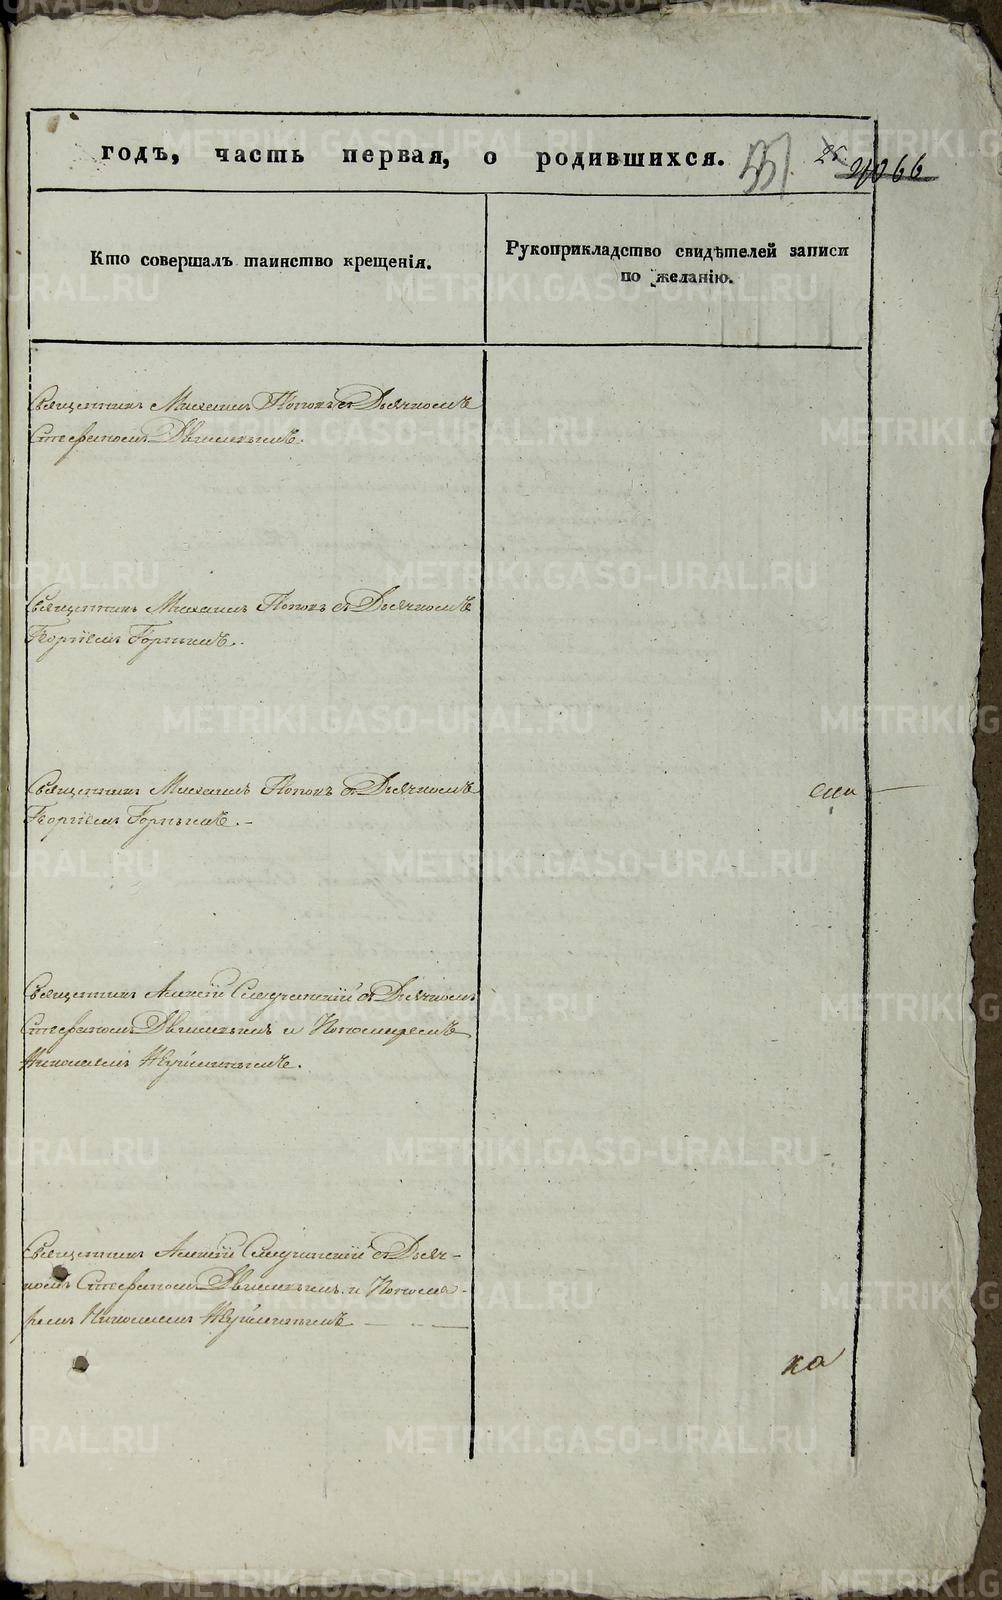 годъ, часть первая, о родившихся.
Кто совершалъ таинство крещенія.
Рукоприкладство свидѣтелей записи
по желанію.
Священникъ Михаилъ Поповъ съ Дьячкомъ
Стефаномъ
Священникъ Михаилъ Поповъ съ Дьячкомъ
Георгіемъ Горнымъ.
Священникъ Михаилъ Поповъ съ Дьячкомъ
Георгіемъ Горнымъ.
Священникъ Алексій съ Дьячкомъ
Стефаномъ и Пономаремъ
Николаемъ
Священникъ Алексій съ Дьяч-
комъ Стефаномъ и Понома-
ремъ Николаемъ
ка
METRIKI.GASO-URAL.RU